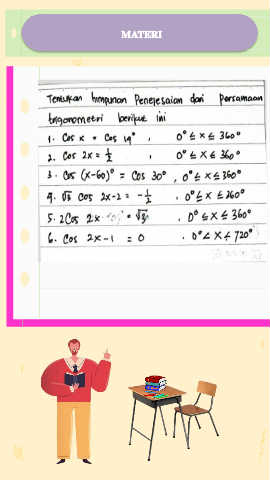 MATERI
Tentukan himpunan Penyelesaian dari persamaan
trigonometri berikut ini
1. Cos x = Cos 19° , 0° ≤ x ≤ 360°
2. Cos 2x = 1/2 , 0° ≤ x ≤ 360°
3. Cos (x-60)° = Cos 30° , 0° ≤ x ≤ 360°
4. √3 Cos 2x-2 = -1/2 , 0° ≤ x ≤ 260°
5. 2 Cos 2x = √3 , 0° ≤ x ≤ 360°
6. Cos 2x-1 = 0 , 0° < x < 720°